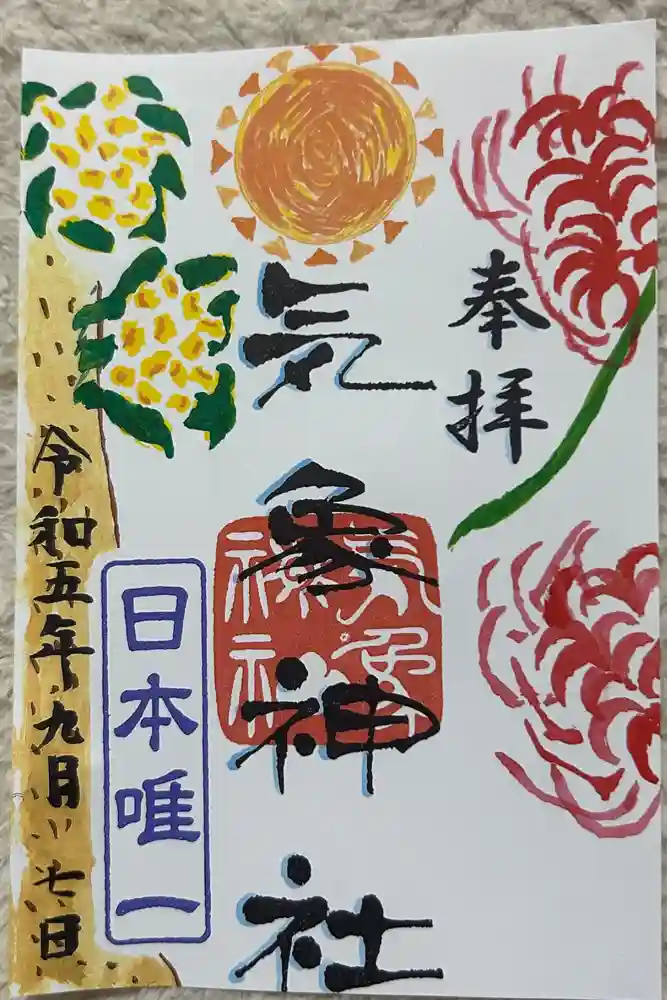 奉拝
気象神社
気象神社
日本唯一
令和五年九月十七日